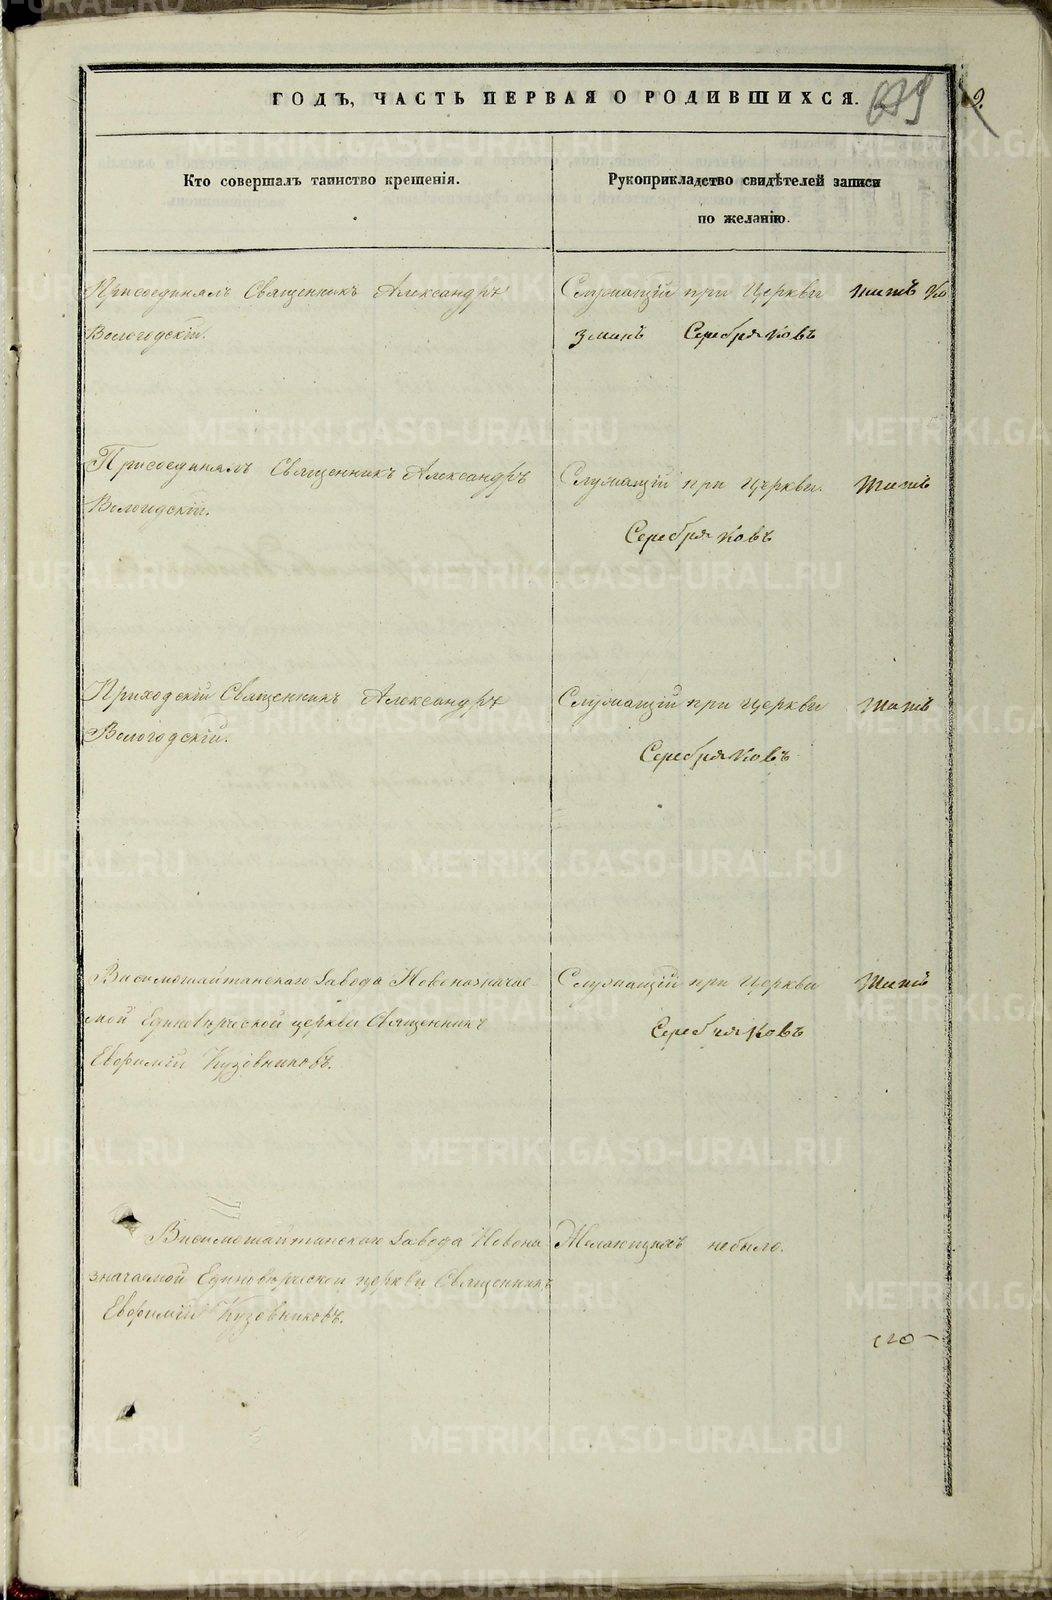 ГОДЪ, ЧАСТЬ ПЕРВАЯ О РОДИВШИХСЯ.
679
2.
Кто совершалъ таинство крещенія.
Рукоприкладство свидѣтелей записи
по желанію.
Присоединялъ Священникъ Александръ
Вологодскій.
Служащій при Церкви Титъ Ко
зминъ Серебряковъ
Присоединялъ Священникъ Александръ
Вологодскій.
Служащій при Церкви Титъ
Серебряковъ
Приходскій Священникъ Александръ
Вологодскій.
Служащій при Церкви Титъ
Серебряковъ
Висимошайтанскаго Завода Новоназначае
мой Единовѣрческой церкви Священникъ
Евфимій Кузовниковъ.
Служащій при Церкви Титъ
Серебряковъ
Висимошайтанскаго Завода Новона
значаемой Единовѣрческой церкви Священникъ
Евфимій Кузовниковъ.
Желающихъ небыло.
METRIKI.GASO-URAL.RU